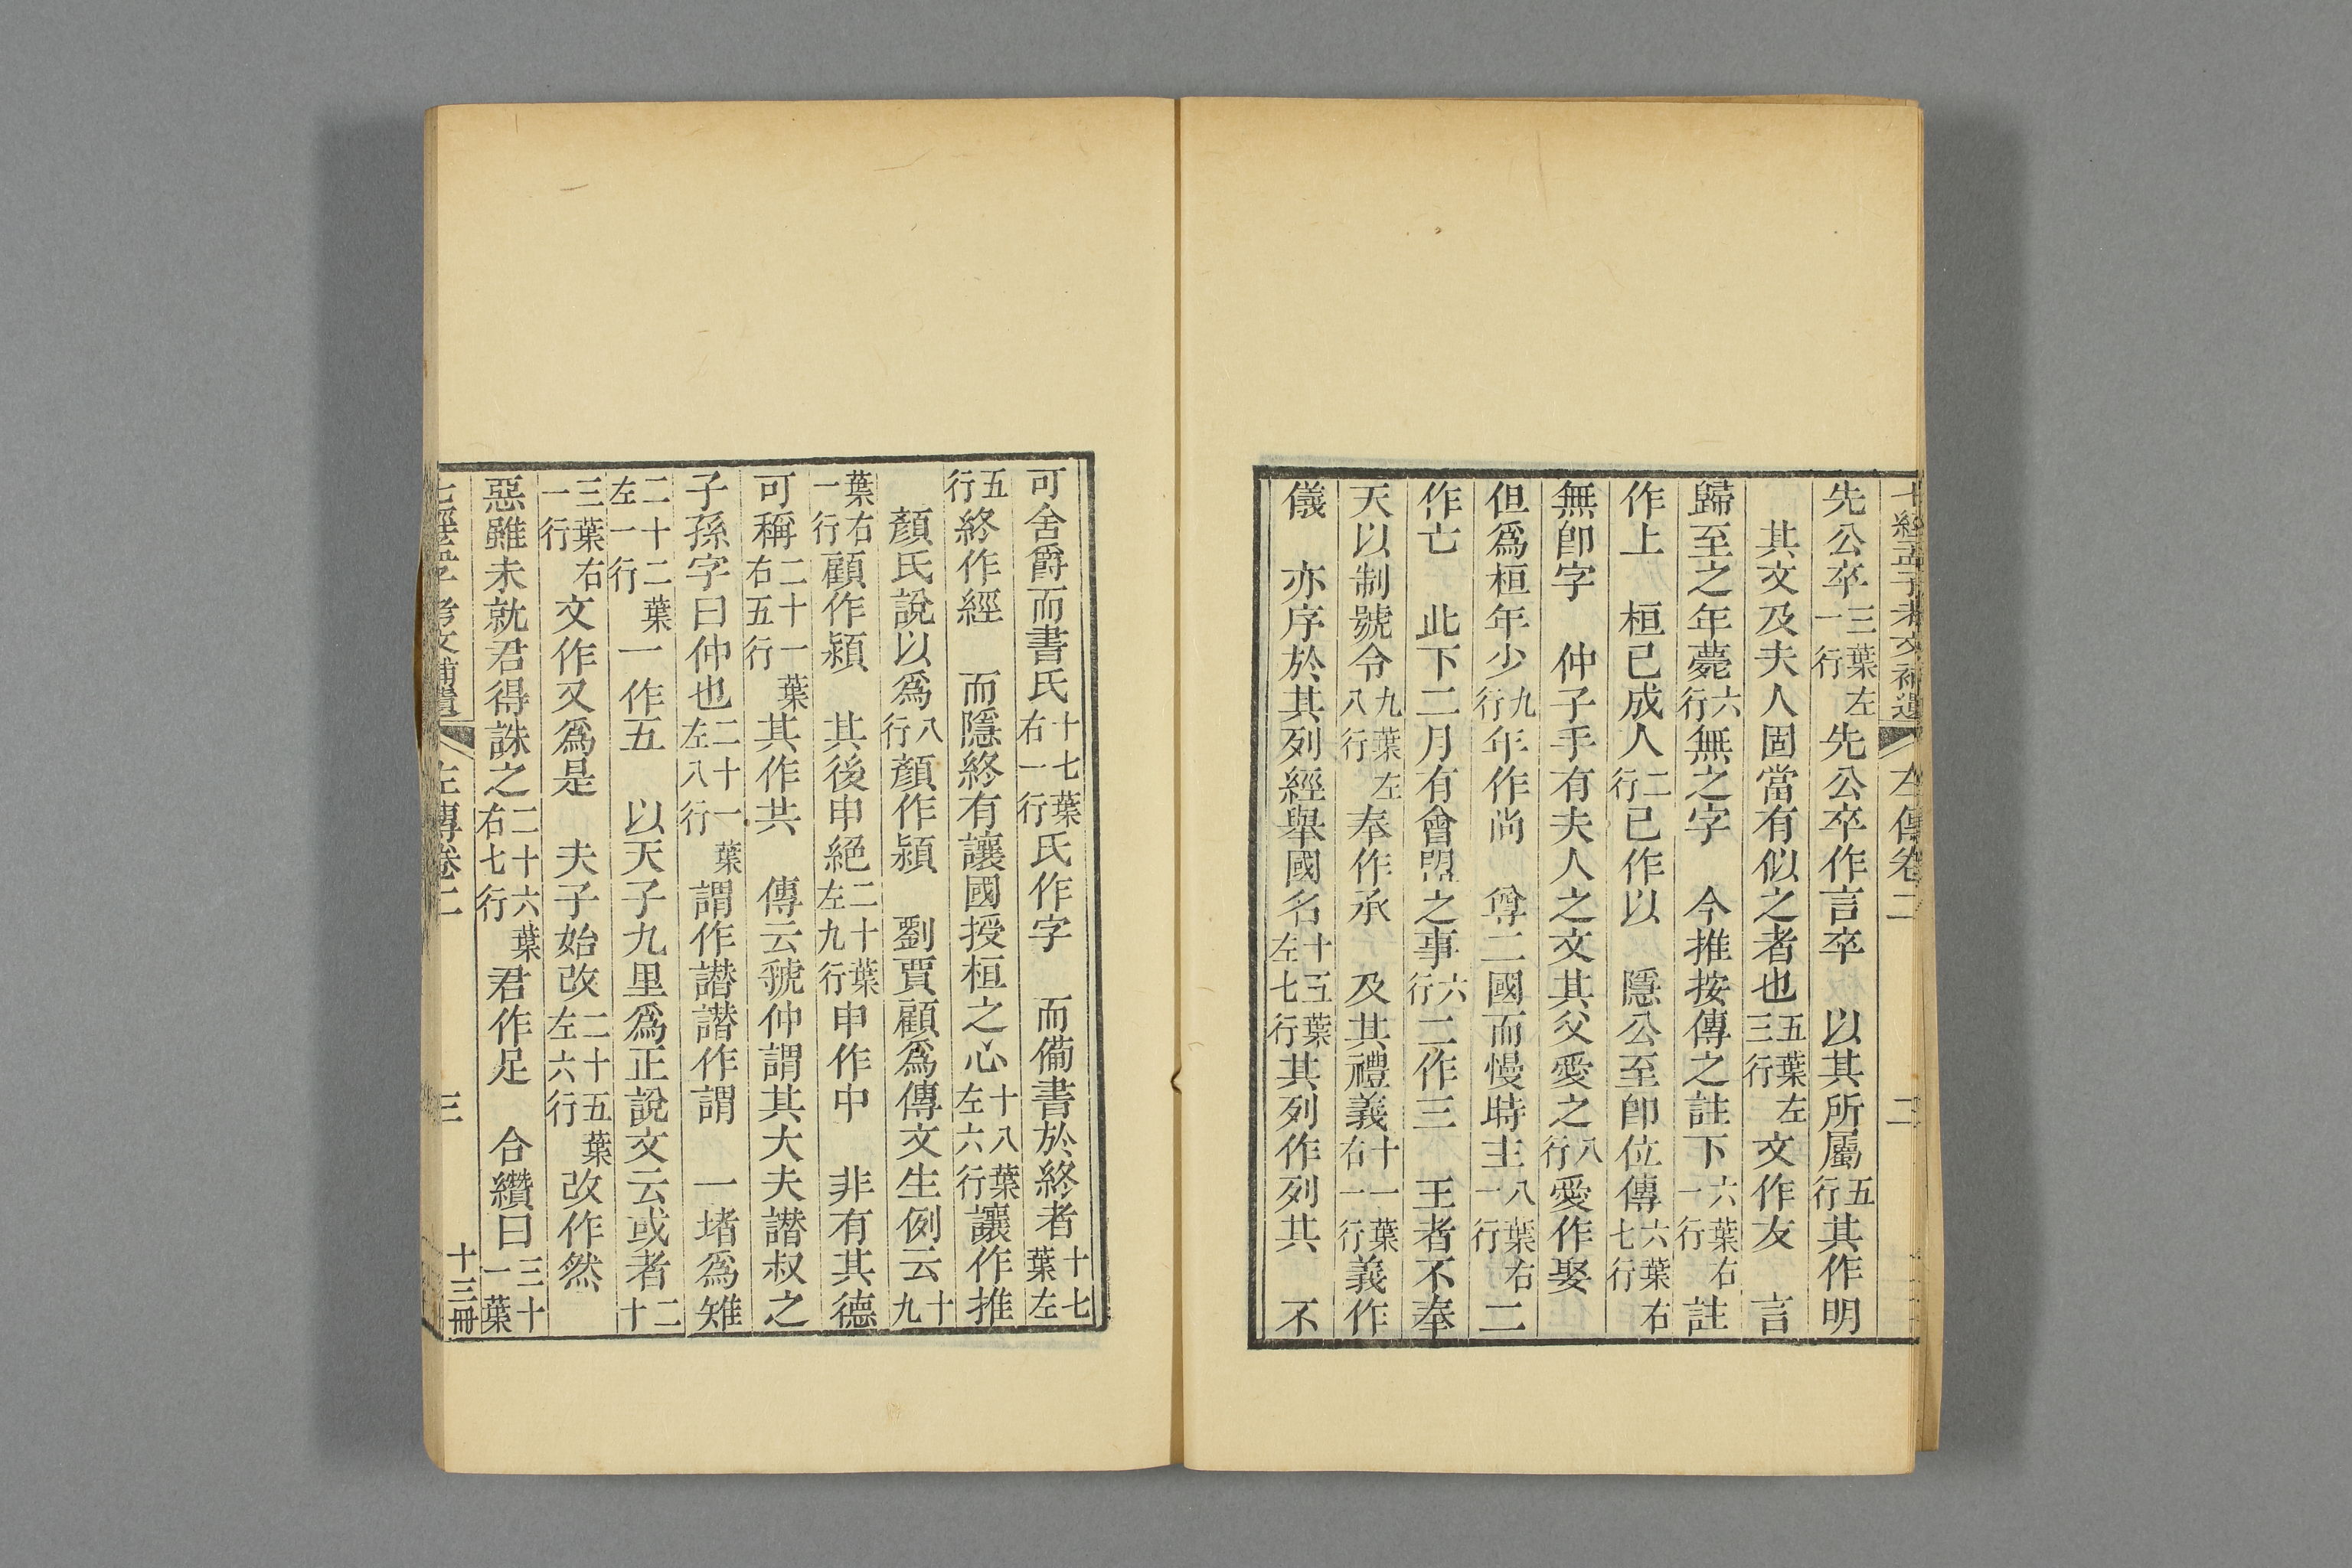 七經孟子考文補遺 左傳卷二 二
先公卒三葉左一行先公卒作言卒 以其所屬五行其作明
其文及夫人固當有似之者也五葉左三行文作友 言
歸至之年薨六行無之字 今推按傳之註下六葉右一行註
作上 桓已成人二行已作以 隱公至卽位傳六葉右七行
無卽字 仲子手有夫人之文其父愛之八行愛作娶
但爲桓年少九行年作尚 尊二國而慢時主八葉右一行二
作亡 此下二月有會盟之事六行二作三 王者不奉
天以制號令九葉左八行奉作承 及其禮義十一葉右一行義作
儀 亦序於其列經舉國名十五葉左七行其列作列共 不
可舍爵而書氏十七葉右一行氏作字 而備書於終者十七葉左
五行終作經 而隱終有讓國授桓之心十八葉左六行讓作推
顏氏說以爲八行顏作潁 劉賈顧爲傳文生例云十九
葉右一行顧作潁 其後申絕二十葉左九行申作中 非有其德
可稱二十一葉右五行其作共 傳云虢仲謂其大夫譖叔之
子孫字曰仲也二十一葉左八行謂作譖譖作謂 一堵爲雉
二十二葉左一行一作五 以天子九里爲正說文云或者二十
三葉右一行文作又爲是 夫子始改二十五葉左六行改作然
惡雖未就君得誅之二十六葉右七行君作足 合纘曰三十一葉
七經孟子考文補遺 左傳卷二 三 十三冊